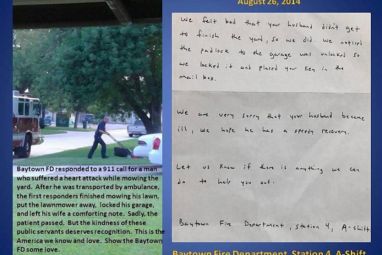 August 26, 2014
We felt bad that your husband didn't get
to finish the yard, so we did. We noticed
the padlock to the garage was unlocked so
we locked it and placed your key in the
mail box.
We are very sorry that your husband became
ill, we hope he has a speedy recovery.
Let us know if there is anything we can
do to help you out.
Baytown Fire Department, Station 4, A-Shift
Baytown FD responded to a 911 call for a man
who suffered a heart attack while mowing the
yard. After he was transported by ambulance,
the first responders finished mowing his lawn,
put the lawnmower away, locked his garage,
and left his wife a comforting note. Sadly, the
patient passed. But the kindness of these
public servants deserves recognition. This is the
America we know and love. Show the Baytown
FD some love.
Baytown Fire Department, Station 4, A-Shift